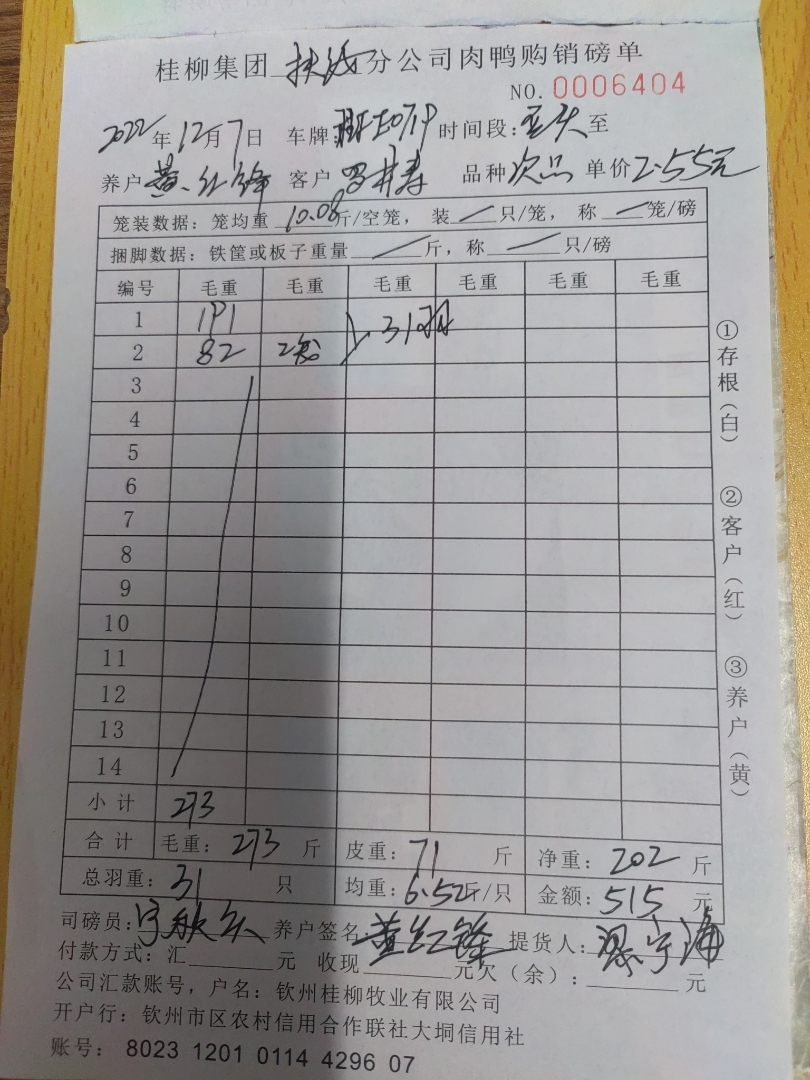 桂柳集团 分公司肉鸭购销磅单
NO.0006404
2022年12月7日 车牌 时间段: 至
养户 黄红锋 客户 罗 寿 品种 次品 单价 2.55元
笼装数据: 笼均重 10.08 斤/空笼, 装 / 只/笼, 称 / 笼/磅
捆脚数据: 铁筐或板子重量 / 斤, 称 / 只/磅
编号 毛重 毛重 毛重 毛重 毛重 毛重
1 191 31羽
2 82
3
4
5
6
7
8
9
10
11
12
13
14
小计 273
合计 毛重: 273 斤 皮重: 71 斤 净重: 202 斤
总羽重: 31 只 均重: 6.52斤/只 金额: 515 元
司磅员: 养户签名 黄红锋 提货人:
付款方式: 汇 元 收现 元 欠(余): 元
公司汇款账号, 户名: 钦州桂柳牧业有限公司
开户行: 钦州市区农村信用合作联社大垌信用社
账号: 8023 1201 0114 4296 07
①存根(白) ②客户(红) ③养户(黄)